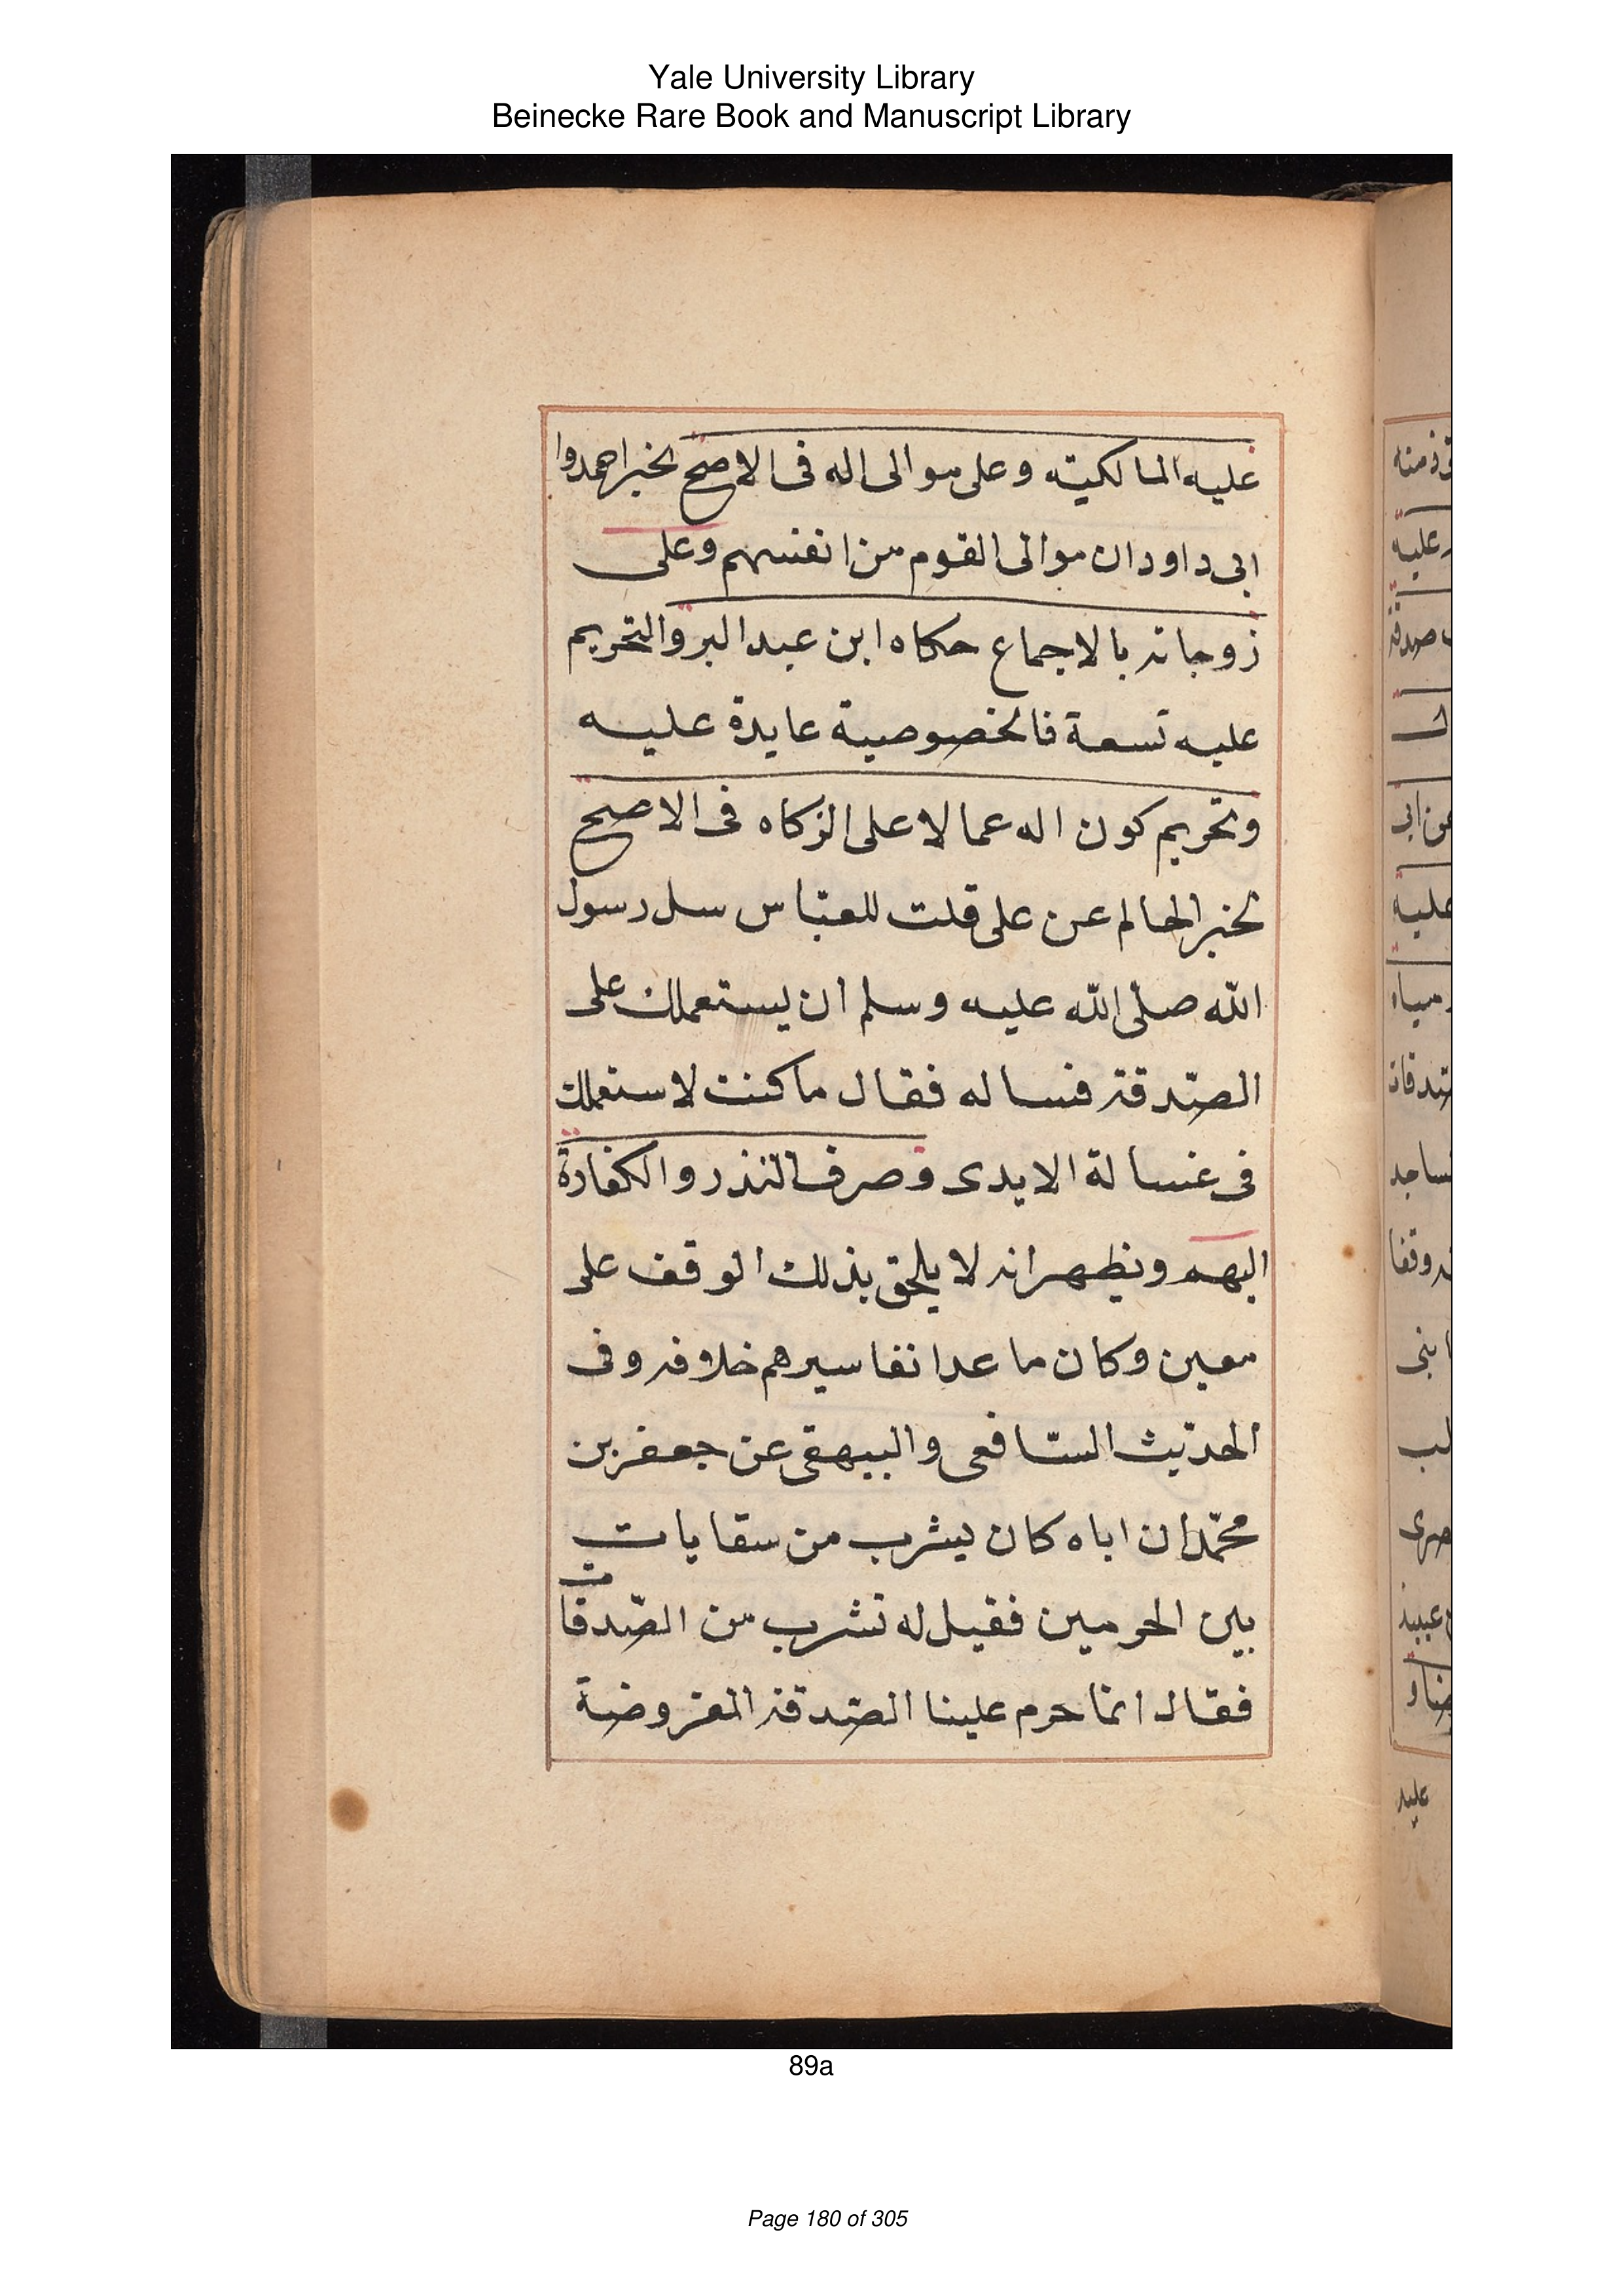 Yale University Library
Beinecke Rare Book and Manuscript Library
عليه المالكية وعلى موالى اله فى الاصح لخبر احمد وا
ابى داود ان موالى القوم من انفسهم وعلى
زوجاته بالاجماع حكاه ابن عبد البر والتحريم
عليه تسعة فالخصوصية عايدة عليه
وتحريم كون اله عمالا على الزكاه فى الاصح
لخبر الحالم عن على قلت للعبّاس سل رسول
الله صلّى الله عليه وسلم ان يستعملك على
الصّدقة فساله فقال ما كنت لاستعملك
فى غسالة الايدى وصرف النذر والكفارة
اليهم ونظهر انه لا يلحق بذلك الوقف على
معين وكان ما عدا تفاسيرهم خلافه وفى
الحديث الشّافعى والبيهقى عن جعفر بن
محمّد ان اباه كان يشرب من سقايات
بين الحرمين فقيل له تشرب من الصّدقات
فقال انما حرم علينا الصّدقة المفروضة
89a
Page 180 of 305